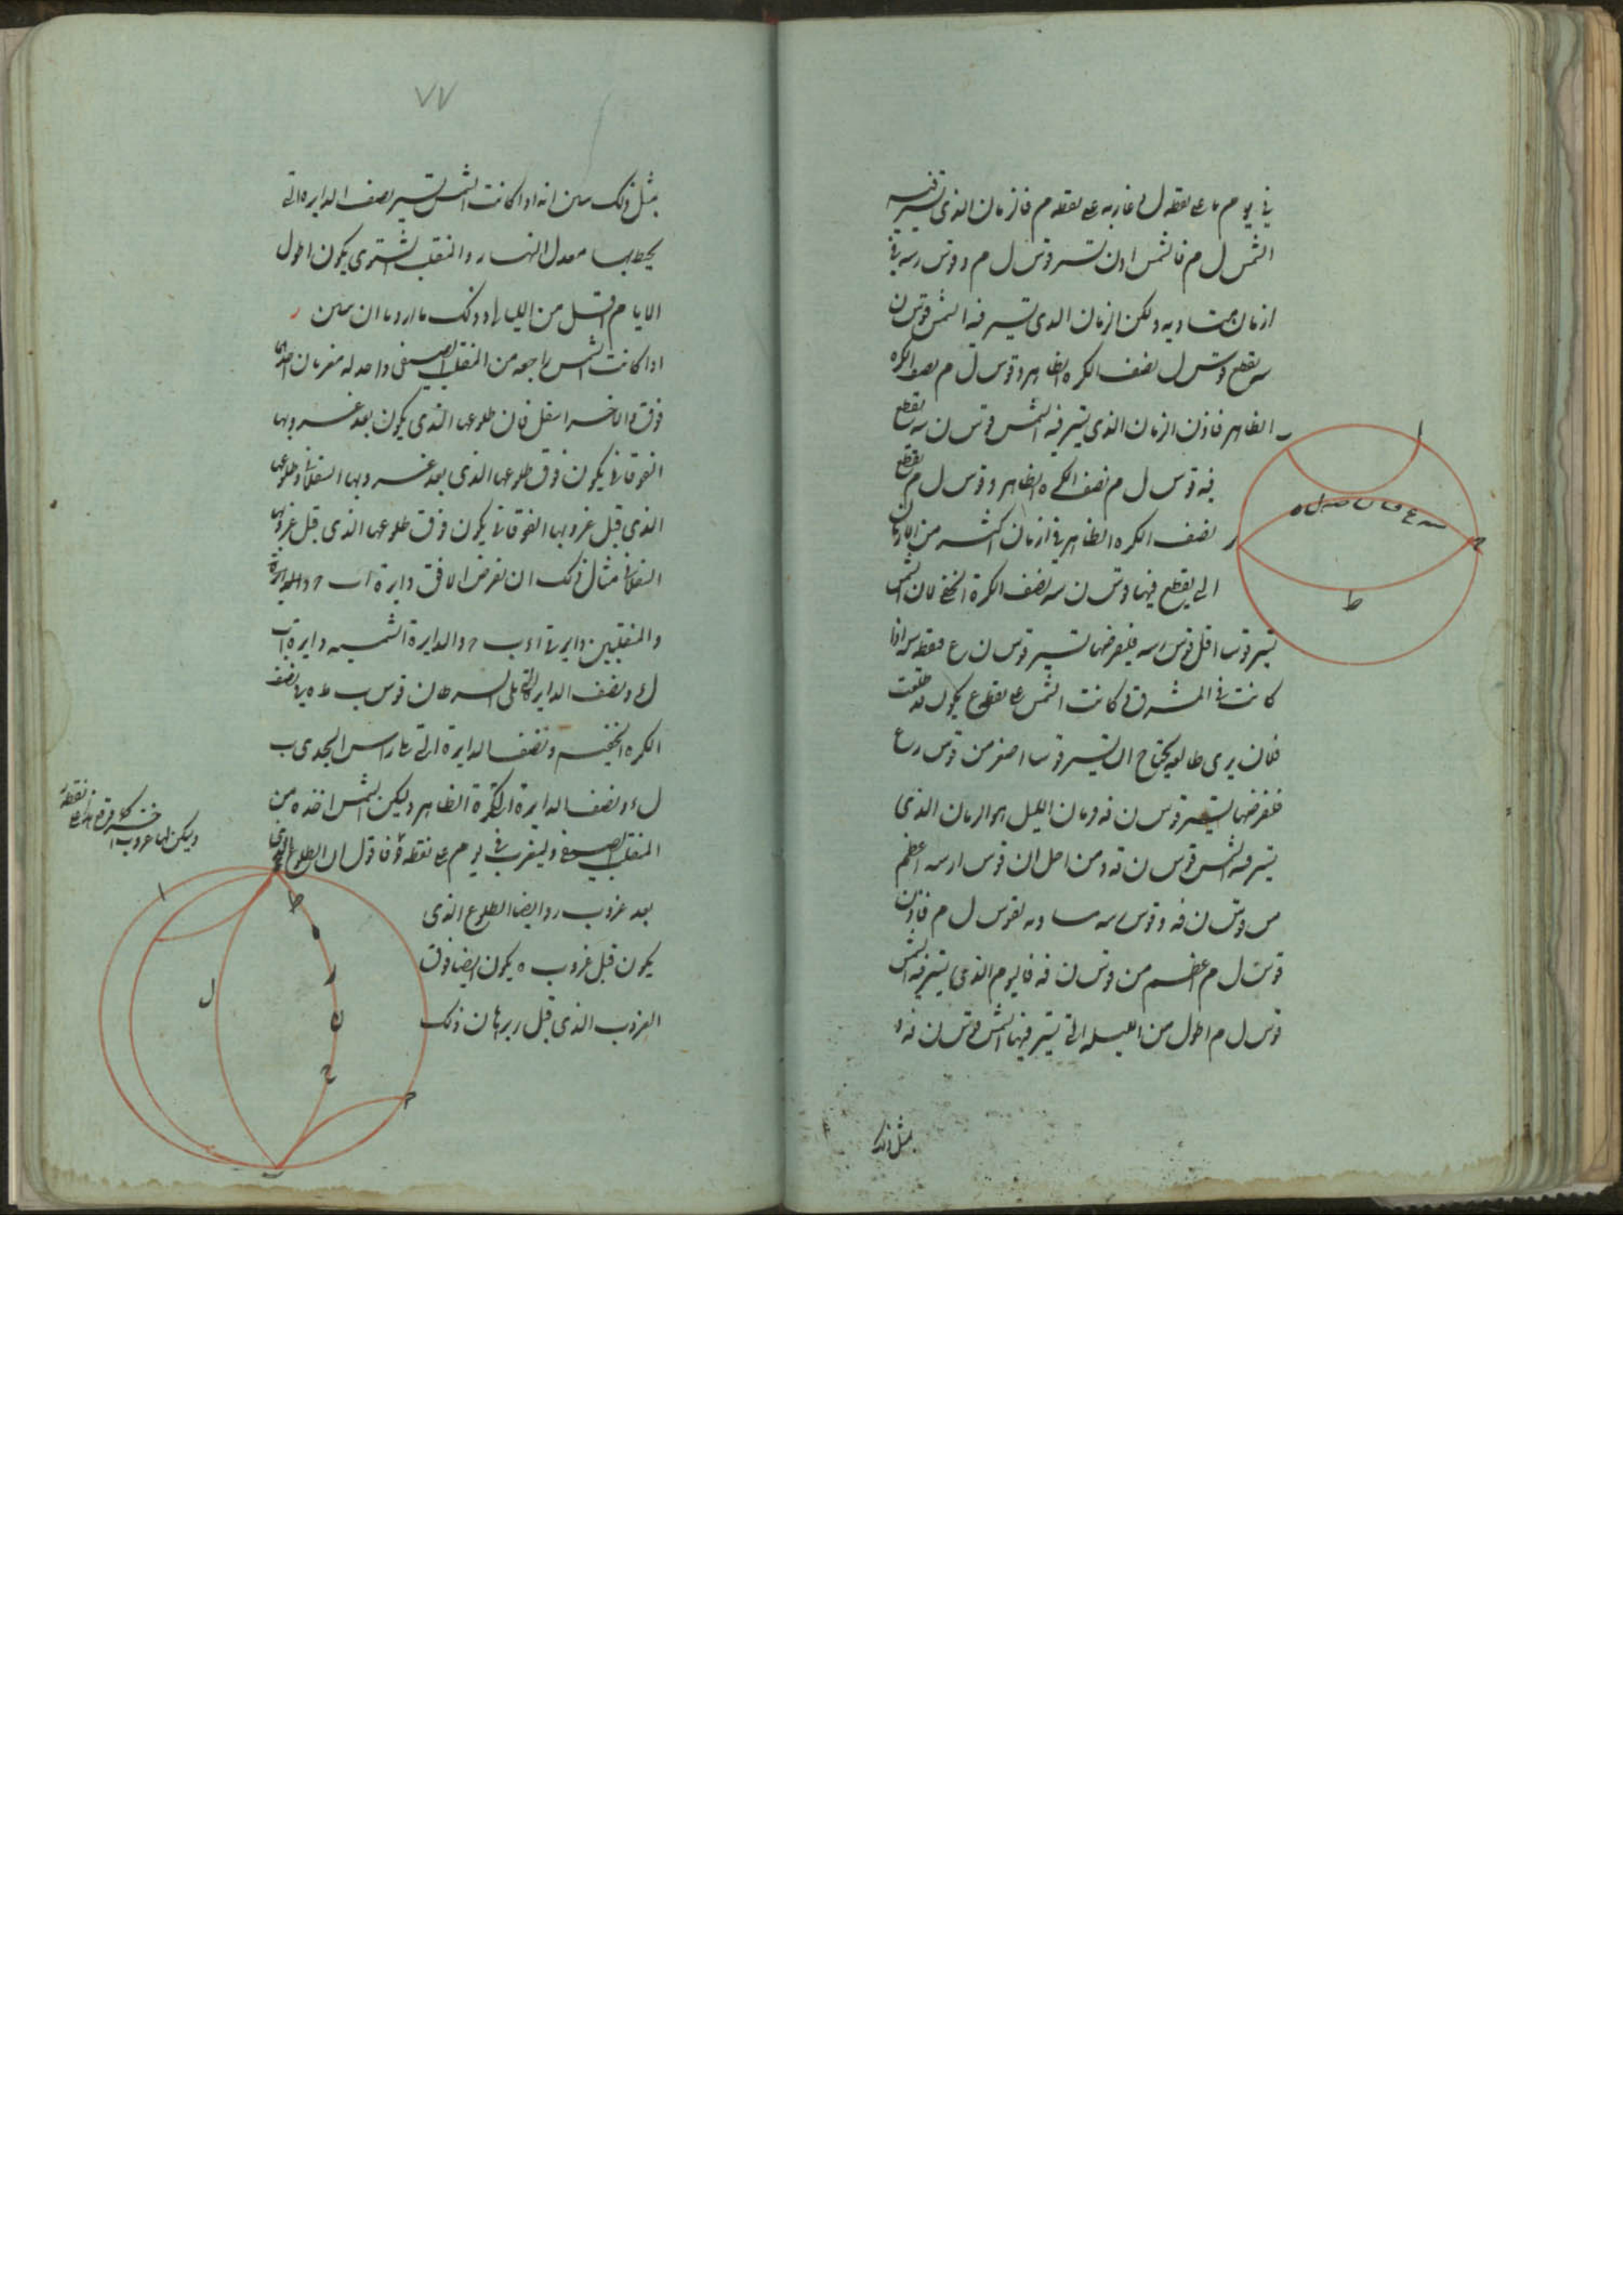 في يوم ما على نقطه ل وغاربه على نقطه م فالزمان الذى تسير فيه
الشمس ل م فالشمس اذن تسير قوس ل م وقوس ر سه في
ازمان متساويه ولكن الزمان الذى تسير فيه الشمس قوس ن
سه يقطع قوس ل نصف الكره الظاهر وقوس ل م نصف الكره
الظاهر فاذن الزمان الذى تسير فيه الشمس قوس ن سه يقطع
فيه قوس ل م نصف الكره الظاهر وقوس ل م يقطع
نصف الكره الظاهر في ازمان اكثر من الازمان
التي يقطع فيها قوس ن سه نصف الكرة الخفي فان الشمس
تسير قوسا اقل قوس ر سه فليفرضها تسير قوس ن ع فنقطه سه اذا
كانت في المشرق كانت الشمس على نقطه ع يكون قد طلعت
فلان يرى طالعه يحتاج ان تسير قوسا اصغر من قوس ر ع
فنفرضها تسير قوس ن فه وزمان الليل هو الزمان الذى
تسير فيه الشمس قوس ن فه ومن اجل ان قوس ر سه اعظم
من قوس ن فه وقوس ر سه مساويه لقوس ل م فاذن
قوس ل م اعظم من قوس ن فه فاليوم الذى تسير فيه الشمس
قوس ل م اطول من الليله التي تسير فيها الشمس قوس ن فه و
مثل ذلك
ا
ح
ط
٧٧
بمثل ذلك يبين انه اذا كانت الشمس تسير نصف الدايره التي
يحيط بها معدل النهار والمنقلب الشتوى يكون اطول
الايام اقل من الليالي وذلك ما اردنا ان نبين ر
اذا كانت الشمس راجعه من المنقلب الصيفى واحد له مغربان احدهما
فوق والاخر اسفل فان طلوعها الذى يكون بعد غروبها
الفوقاني يكون فوق طلوعها الذى بعد غروبها السفلاني وطلوعها
الذى قبل غروبها الفوقاني يكون فوق طلوعها الذى قبل غروبها
السفلاني مثال ذلك ان نفرض الافق دايرة ا ب ح والدايرة
والمنقلبين دايرتي ا د ب ح والدايرة الشمسيه دايرة ب
ل ونصف الدايرة التي يلى السرطان قوس ب ط ه في نصف
الكره الخفيه ونصف الدايرة التي يلى راس الجدى ب
ل ونصف الدايرة الكرة الظاهر وليكن الشمس اخذه من
المنقلب الصيفى وليغرب في يوم على نقطه ه فاقول ان الطلوع الذى
بعد غروب ر وايضا الطلوع الذى
يكون قبل غروب ه يكون ايضا فوق
الغروب الذى قبل ر برهان ذلك
وليكن لها غروب
نقطه ر
ا
ط
ر
ل
ه
ح
ب